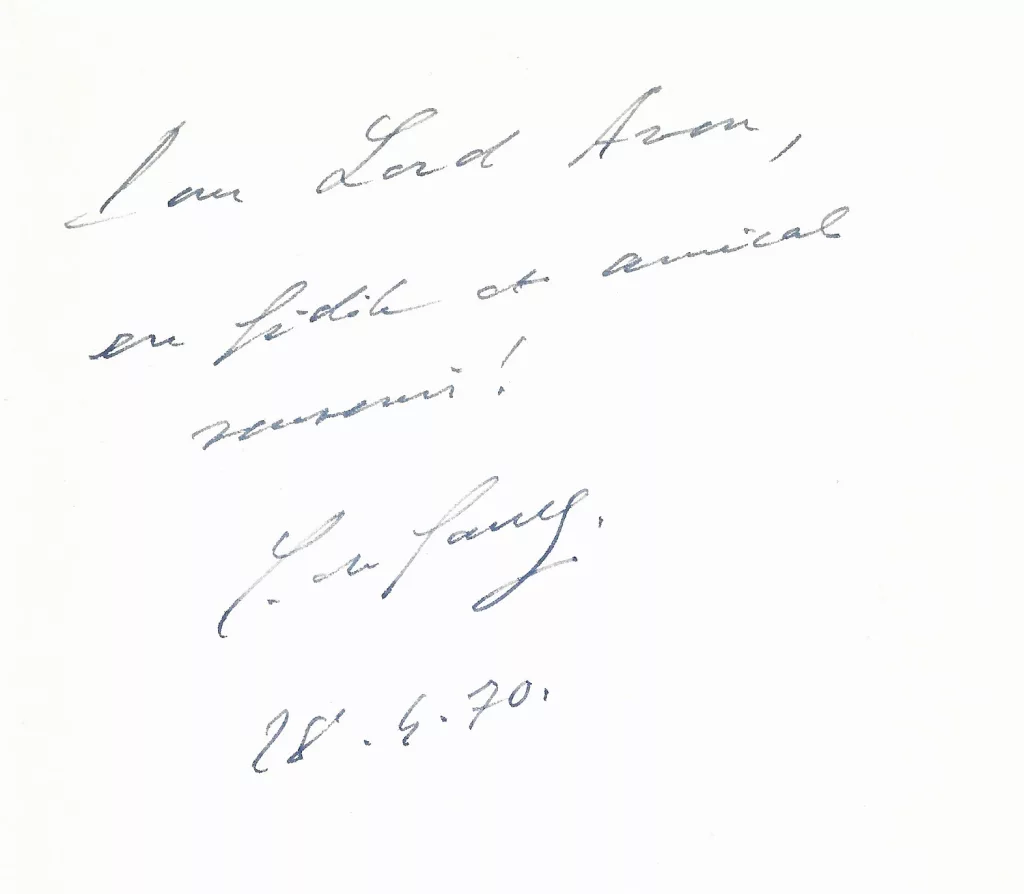 Pour Lord Avon,
en fidèle et amical
souvenir !
C. de Gaulle.
28.4.70.